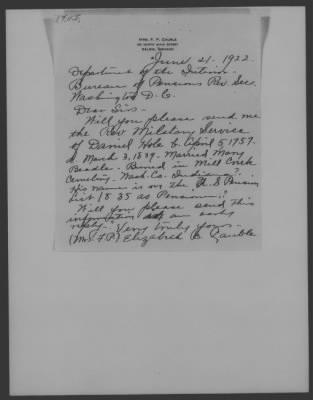 MRS. F. P. CAUBLE
SALEM, INDIANA
June 21, 1922.
Department of the Interior.
Bureau of Pensions Rev. Sec.
Washington D.C.
Dear Sir:-
Will you please send me
the Rev. Military Service
of Daniel Hole b. April 5 1757.
d. March 3, 1839. Married Mary
Beadle. Buried in Mill Creek
Cemetery - Wash. Co. Indiana?
His name is on the U.S. Pension
List 1835 as Pensioner?
Will you please send this
information at an early
Very truly yours -
(Mrs. F.P.) Elizabeth C. Cauble